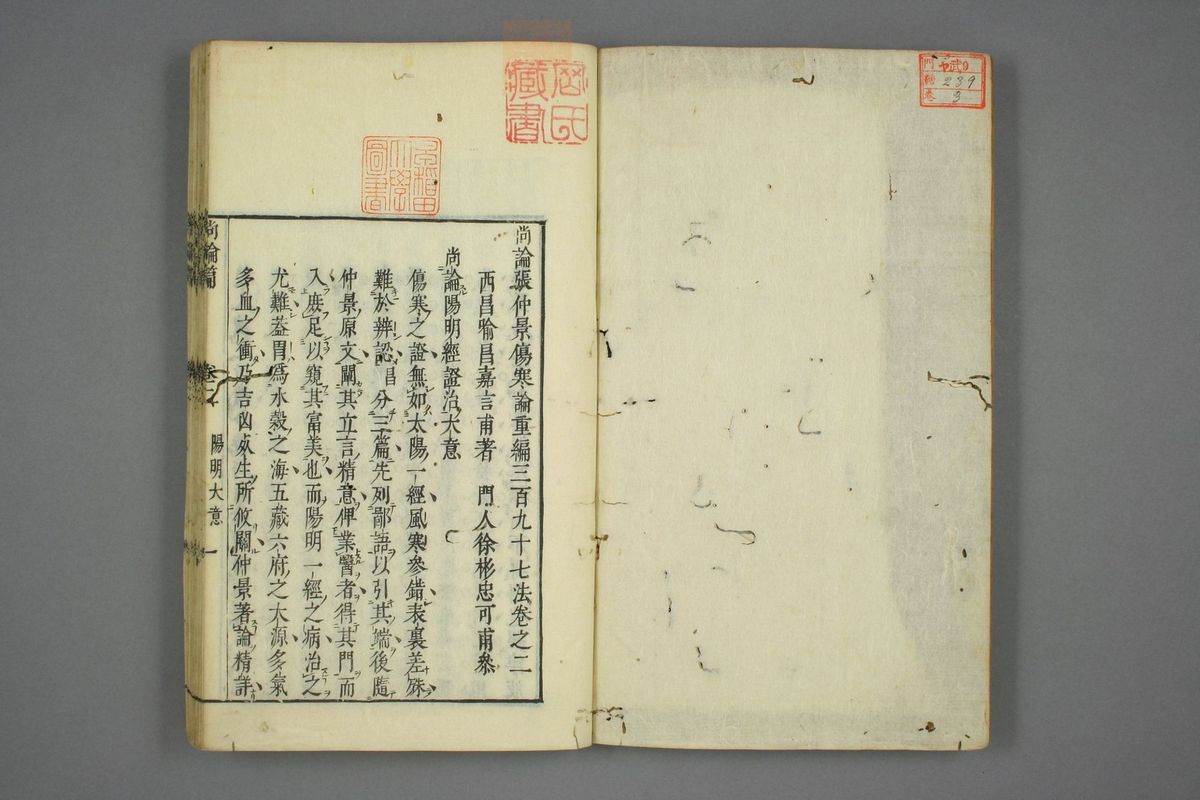 門 ヤ武9
號 239
卷 3
窪氏
藏書
早稻田
大學
圖書
尚論張仲景傷寒論重編三百九十七法卷之二
西昌喻昌嘉言甫著 門人徐彬忠可甫叅
尚論陽明經證治大意
傷寒之證無如太陽一經風寒參錯表裏差殊
難於辨認昌分三篇先列鄙語以引其端後隨
仲景原文闡其立言精意俾業醫者得其門而
入庶足以窺其富美也而陽明一經之病治之
尤難葢胃爲水榖之海五藏六府之大源多氣
多血之衝乃吉凶㱔生所攸關仲景著論精詳
尚論篇 卷二 陽明大意 一